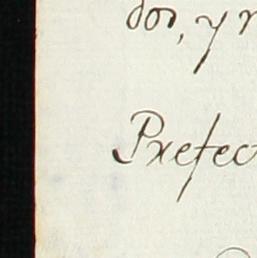 dor, y
Prefec